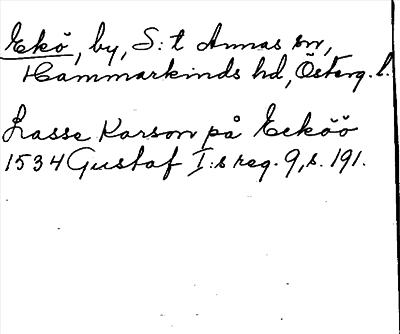 Ekö, by, S:t Annas sn,
Hammarkinds hd, Österg. l.
Lasse Karson på Eeköö
1534 Gustaf I:s reg. 9, s. 191.